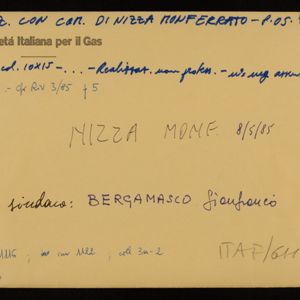 Z. CON COM. DI NIZZA MONFERRATO - P.OS.
età Italiana per il Gas
col. 10x15 - ... - Realizzaz. non profess. -
- Riv 3/85 f 5
NIZZA MONF. 8/5/85
sindaco: BERGAMASCO Gianfranco
1122 ; 3m-2
ITAF/611